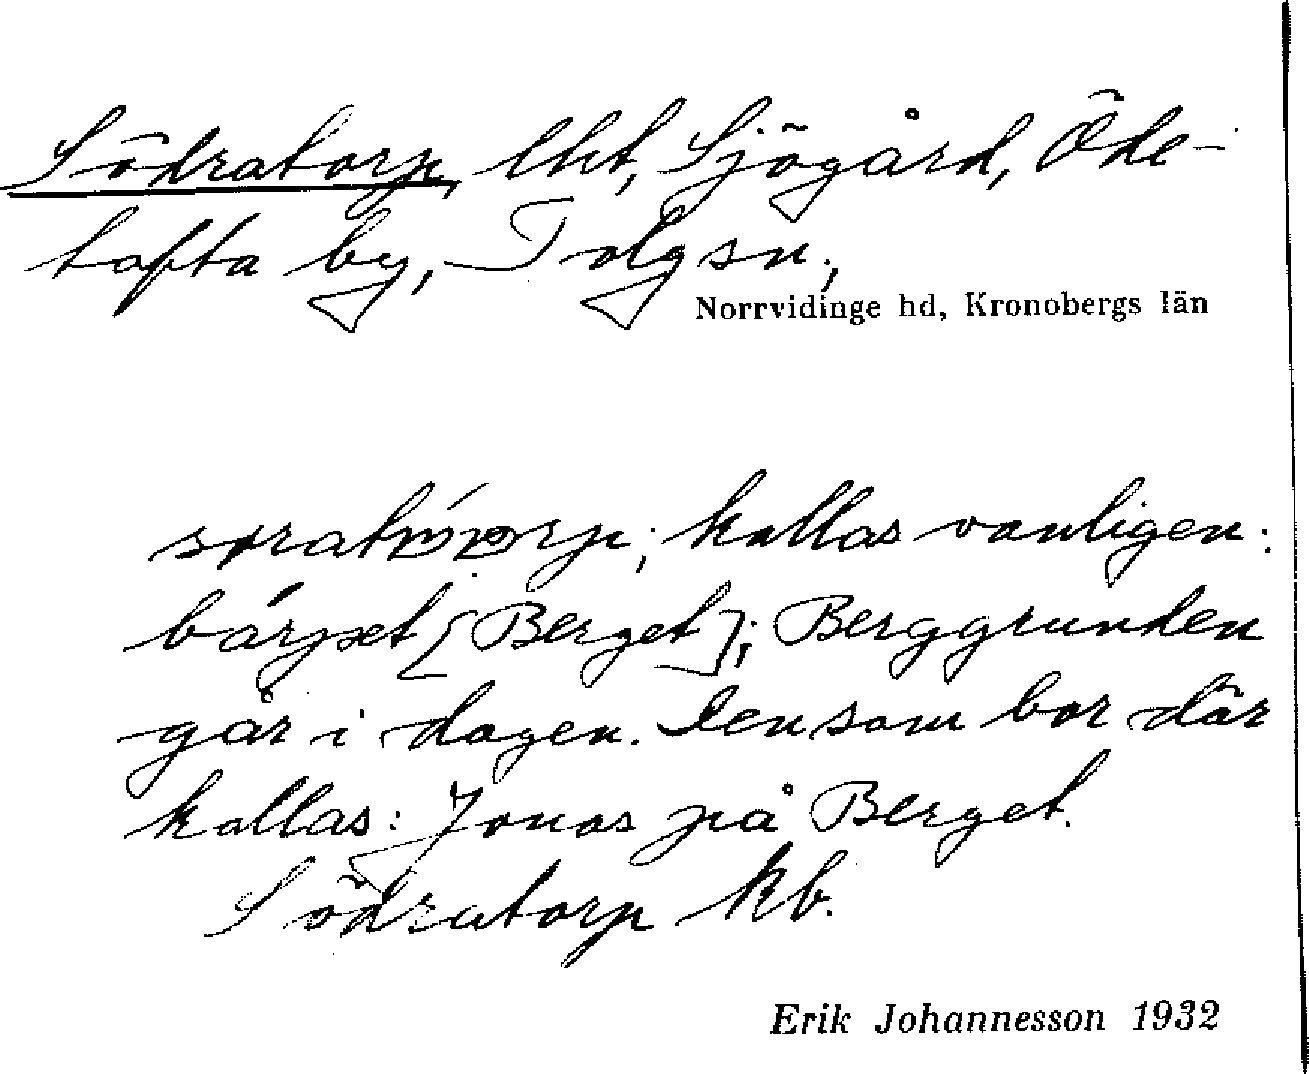 Södratorp, lht, Sjögård, Öde-
tofta by, Tolgsn,
Norrvidinge hd, Kronobergs län
kallas vanligen:
[Berget]; Berggrunden
går i dagen. Den som bor där
kallas: Jonas på Berget.
Södratorp kb.
Erik Johannesson 1932